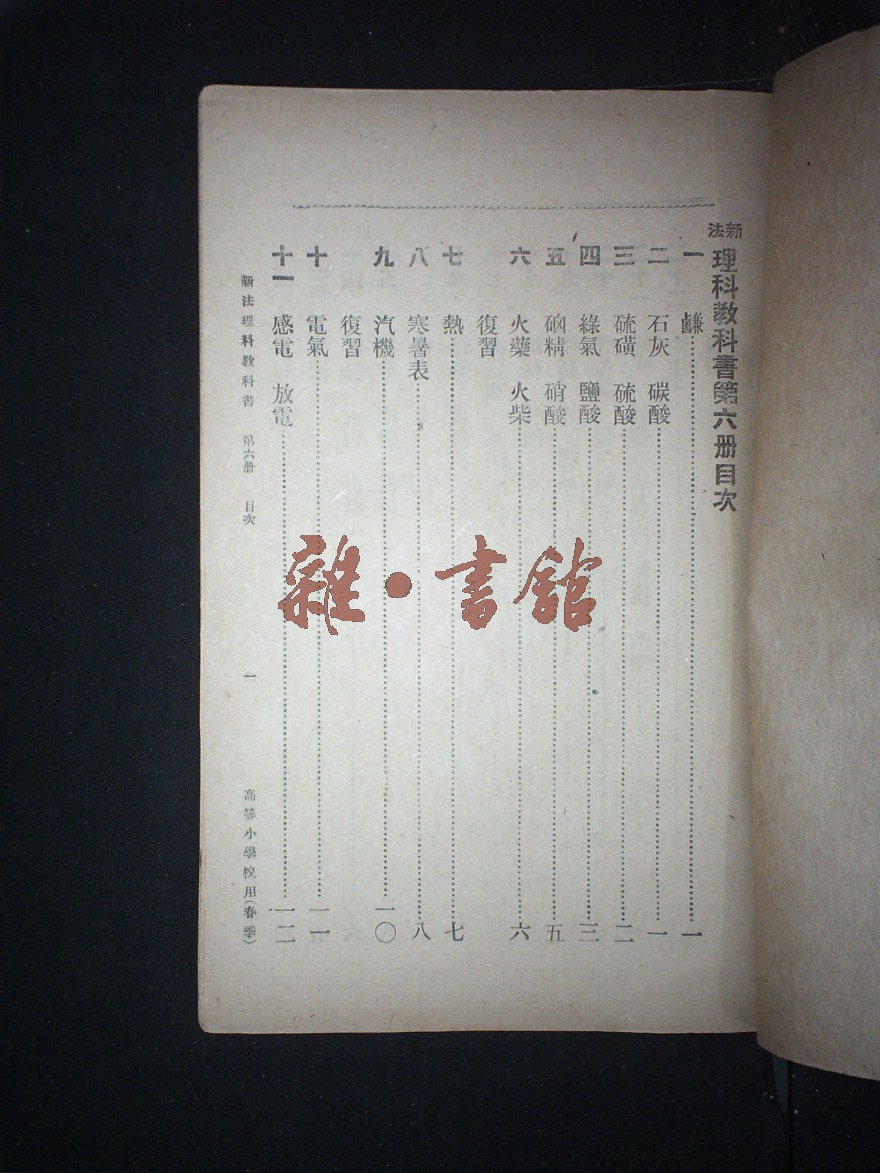 新法理科教科書第六册目次
一 鹻……一
二 石灰 碳酸……一
三 硫磺 硫酸……二
四 綠氣 鹽酸……三
五 硇精 硝酸……五
六 火藥 火柴……六
復習
七 熱……七
八 寒暑表……八
九 汽機……一〇
復習
十 電氣……一一
十一 感電 放電……一二
新法理科教科書 第六册 目次 一 高等小學校用(春季)
雜·書館